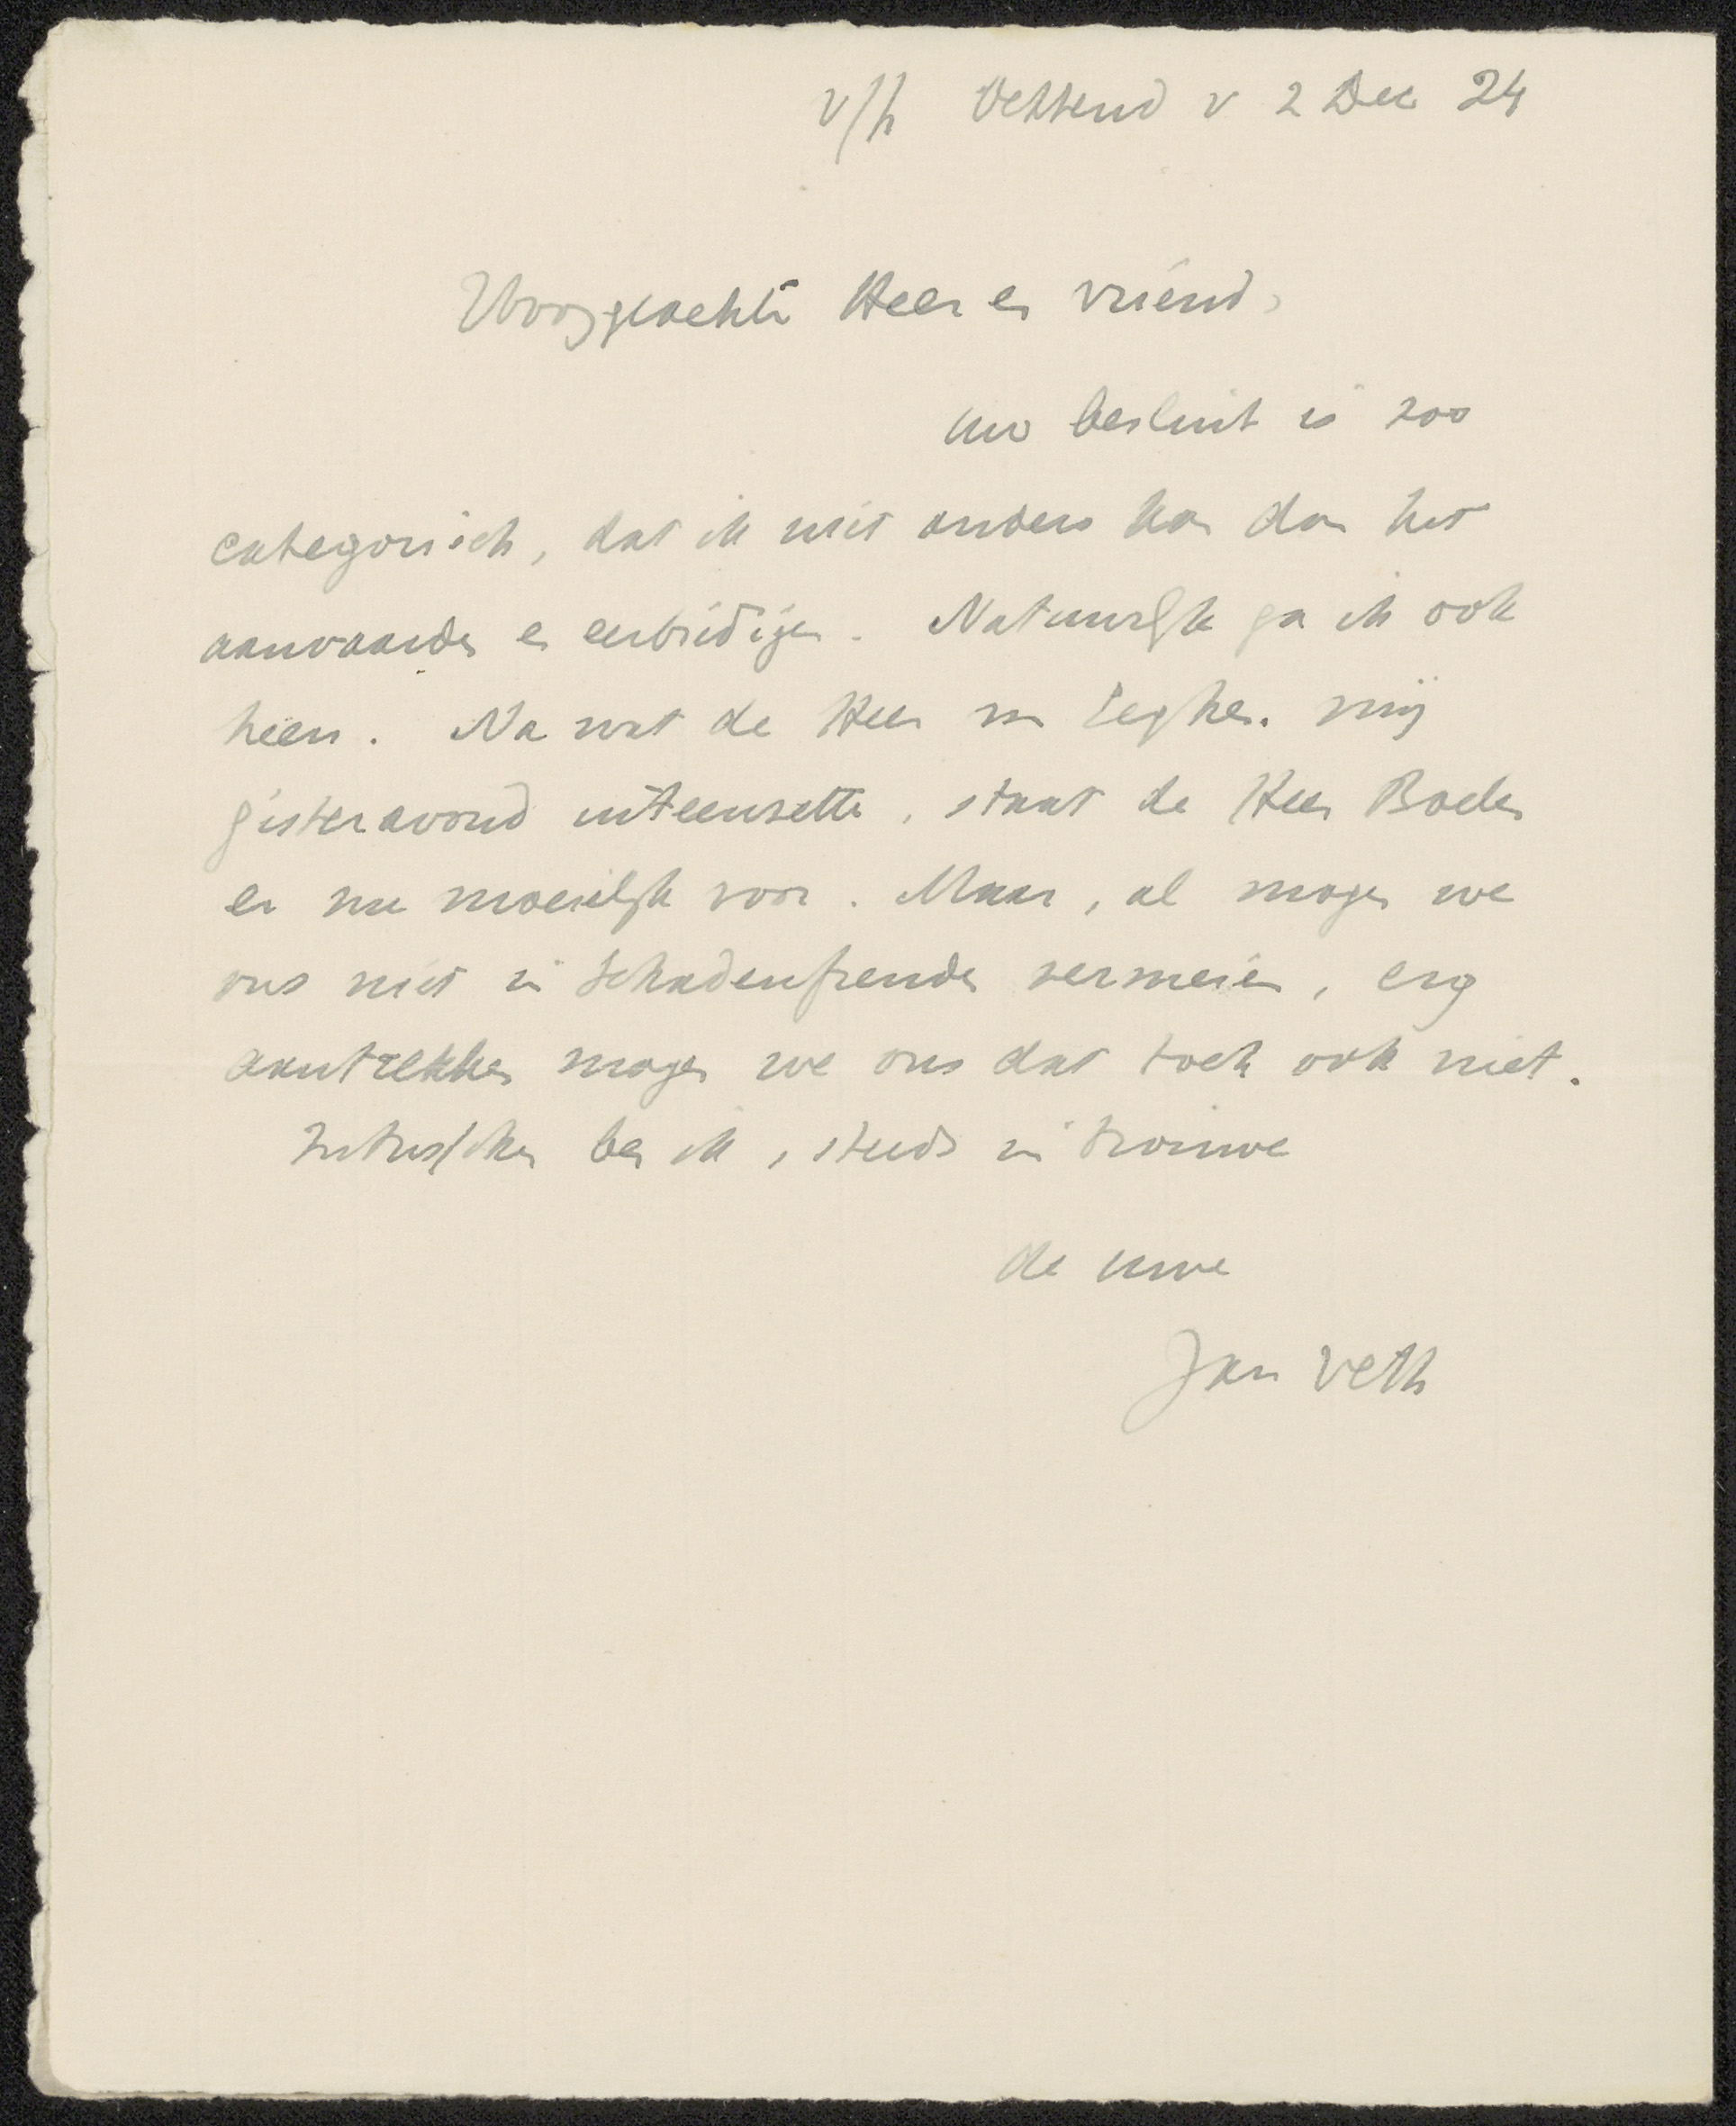 v/h Ochtend v 2 Dec 24
Hooggeachte Heer en vriend,
Uw besluit is zoo
categorisch, dat ik niet anders kan dan het
aanvaarden en eerbiedigen. Natuurlijk ga ik ook
heen. Na wat de Heer van Eeghen mij
gisteravond uiteenzette, staat de Heer Boelen
er nu moeielijk voor. Maar, al mogen we
ons niet in Schadenfreude vermeien, erg
aantrekken mogen we ons dat toch ook niet.
Intusschen ben ik, steeds in trouwe
de uwe
Jan Veth